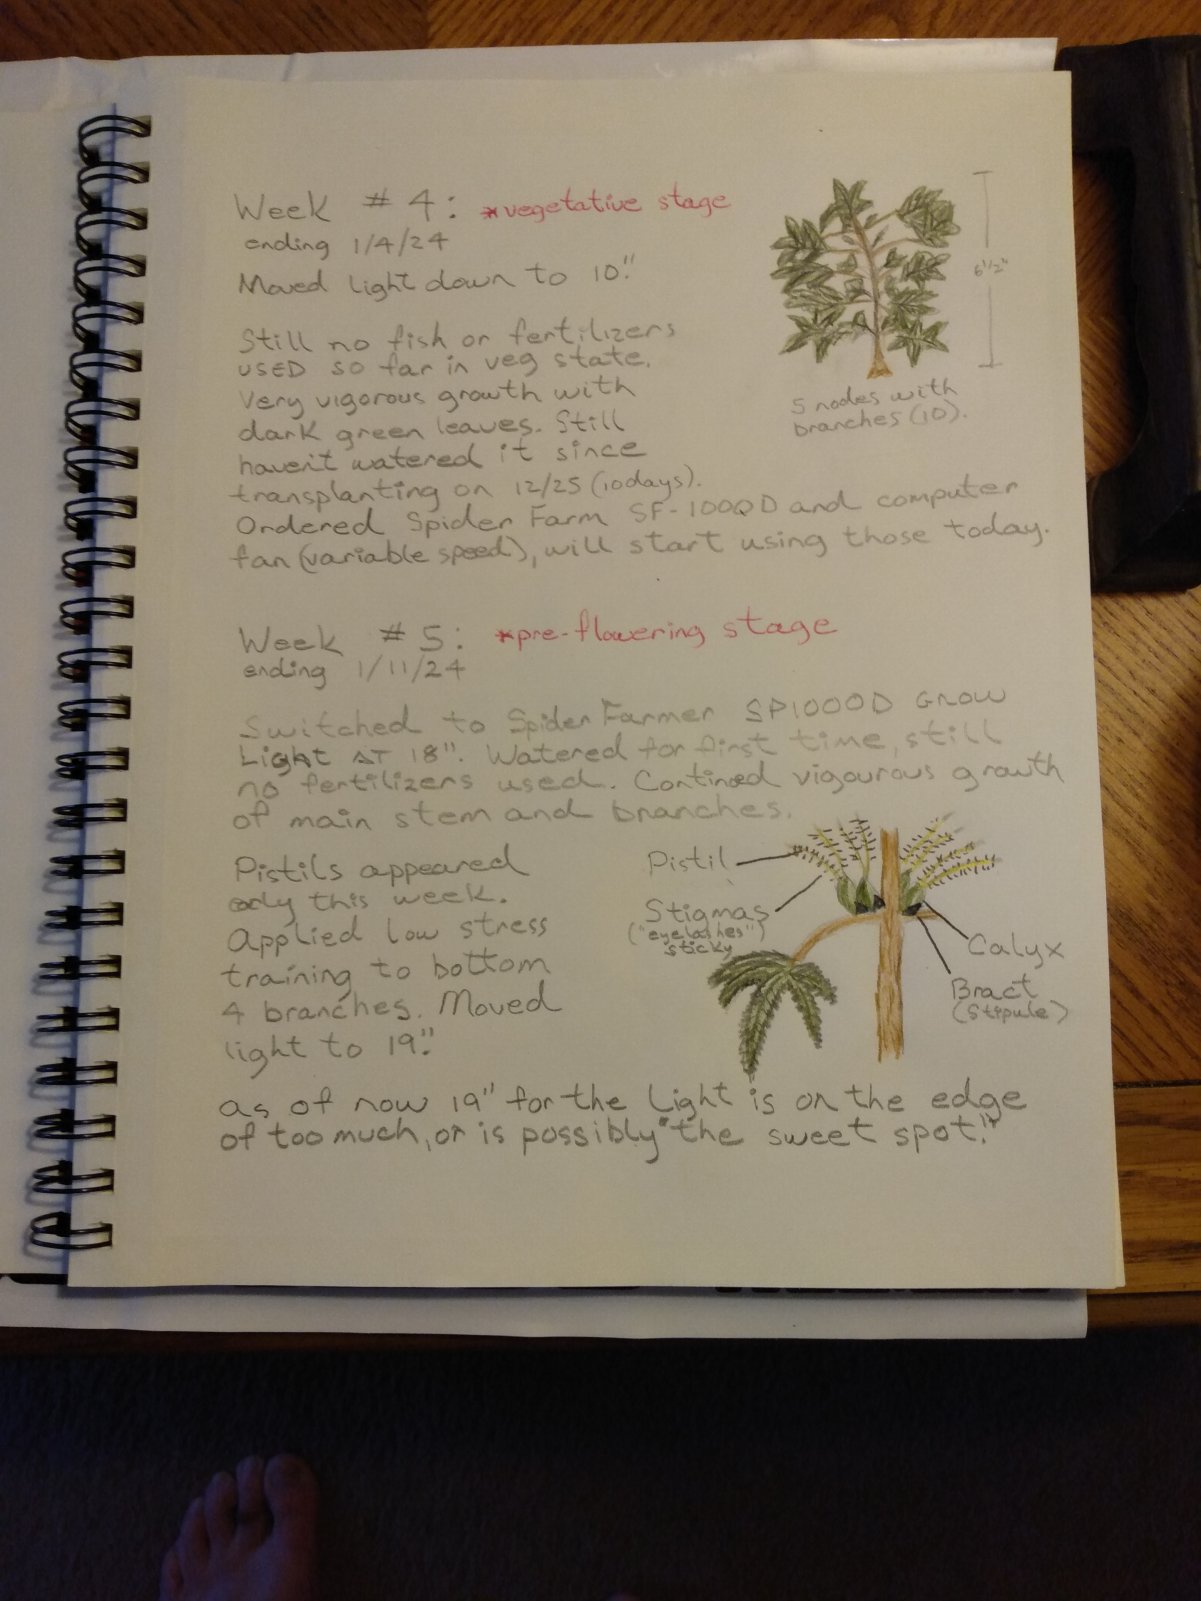 Week #4: *vegetative stage
ending 1/4/24
Moved light down to 10".
Still no fish or fertilizers
USED so far in veg state.
Very vigorous growth with
dark green leaves. Still
haven't watered it since
transplanting on 12/25 (10days).
Ordered Spider Farm SF-1000D and computer
fan (variable speed), will start using those today.
6 1/2"
5 nodes with
branches (10).
Week #5: *pre-flowering stage
ending 1/11/24
Switched to Spider Farmer SP1000D GROW
LIGHT AT 18". Watered for first time, still
no fertilizers used. Continued vigourous growth
of main stem and branches.
Pistils appeared
early this week.
Applied low stress
training to bottom
4 branches. Moved
light to 19".
Pistil
Stigmas
("eyelashes")
sticky
Calyx
Bract
(Stipule)
as of now 19" for the Light is on the edge
of too much, or is possibly "the sweet spot."